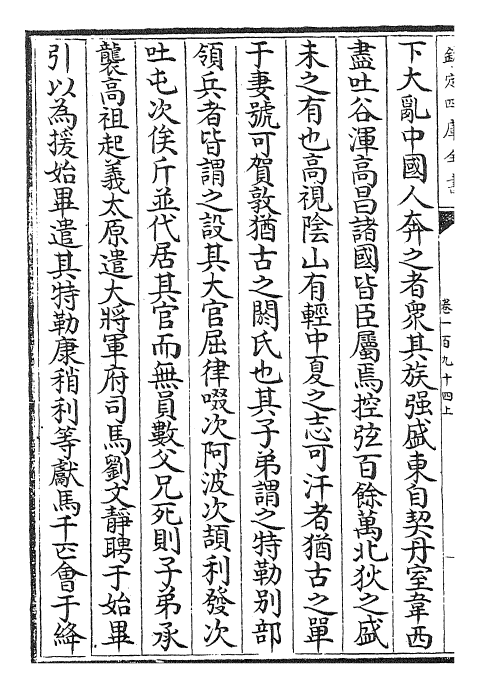 欽定四庫全書
卷一百九十四上
下大亂中國人奔之者衆其族强盛東自契丹室韋西
盡吐谷渾高昌諸國皆臣屬焉控弦百餘萬北狄之盛
未之有也高視陰山有輕中夏之志可汗者猶古之單
于妻號可賀敦猶古之閼氏也其子弟謂之特勒别部
領兵者皆謂之設其大官屈律啜次阿波次頡利發次
吐屯次俟斤並代居其官而無員數父兄死則子弟承
襲高祖起義太原遣大將軍府司馬劉文静聘于始畢
引以為援始畢遣其特勒康稍利等獻馬千匹會于絳